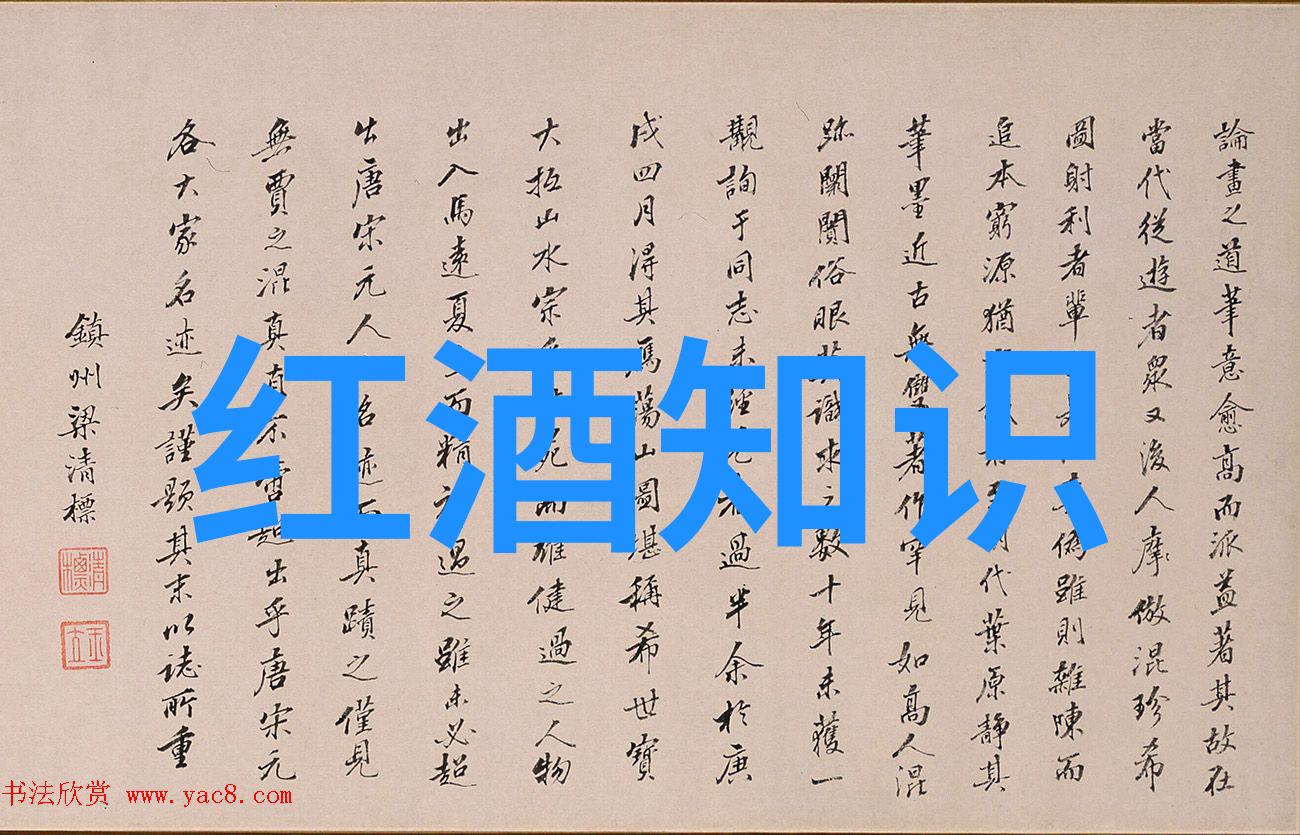 論畫之道筆意愈高而派益著其故在
當代從遊者眾又後人摩倣混珍希
圖射利者輩偽雖則雜陳而
追本窮源猶代葉原靜其
筆墨近古無雙著作罕見如高人混
跡闤闠俗眼識求之數十年未獲一
觀詢于同志未經見者過半余於庚
戌四月得其馬蕩山圖堪稱希世寶
大抵山水宗而雄健過之人物
出入馬遠夏而精過之雖未必超
出唐宋元人名迹而真蹟之僅見
無賈之混真真出乎唐宋元
各大家名迹矣謹題其末以誌所重
鎮州梁清標
清標
玉立
红酒知识
书法欣赏 www.yac8.com